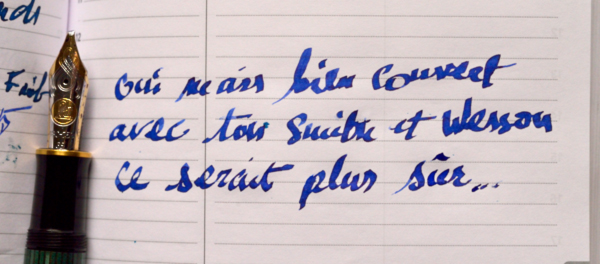 oui mais bien couvert
avec ton Smith et Wesson
ce serait plus sûr...